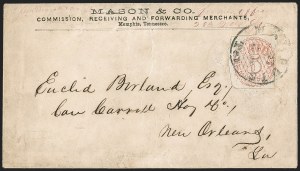 MASON & CO.
COMMISSION, RECEIVING AND FORWARDING MERCHANTS,
Memphis, Tennessee.
Euclid Borland, Esq,
Care Carroll Hoy & Co,
New Orleans,
La